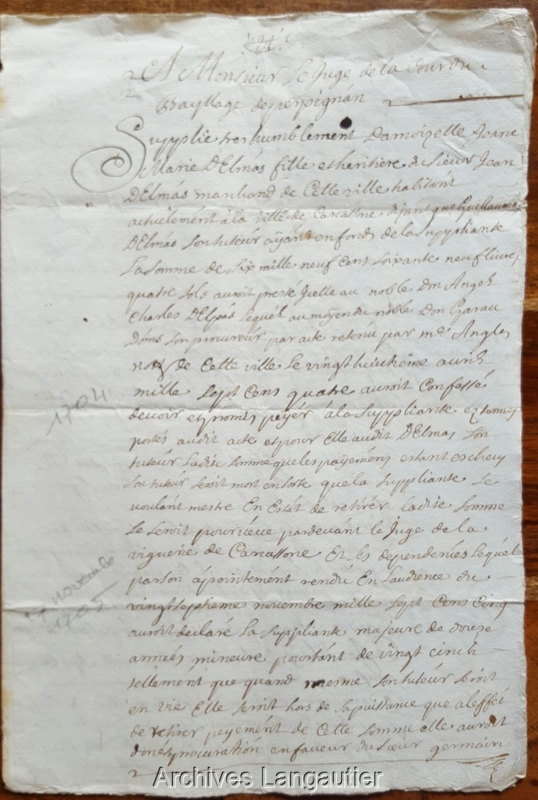 A Monsieur Le Juge de la Cour du
Bayllage de perpignan
Supplie tres humblement Damoizelle Jeane
Marie D'Elmas fille et heritiere du Sieur Jean
D'Elmas marchand de Cette ville habitant
actuelement à la ville de Carcassonne disant que Guillaume
D'Elmas son tuteur ayant en fonds de la Suppliante
La somme de Six mille neuf cens soixante neuf livres
quatre sols auroit presté Icelle au noble Don Angel
Charles D'Elpas lequel au moyen du noble Don
son procureur par acte retenu par me Angles
nore de Cette ville le vingt huitième avril
mille sept cens quatre auroit Confessé
devoir et promis payer a la Suppliante ez termes
portés audit acte et pour Elle audit D'Elmas Son
tuteur ladite somme que les payemens estant escheus
son tuteur seroit mort en sorte que la Suppliante se
voulant mettre En Estat de retirer ladite somme
Se seroit pourveue pardevant le Juge de la
viguerie de Carcassone Et ses dependences lequel
par son apointement rendu En Laudience du
vingt septieme novembre mille sept cens Cinq
auroit declaré la Suppliante majeure de douze
années mineure pourtant de vingt cinch
tellement que quand mesme son tuteur seroit
en vie Elle seroit hors de sa puissance que a leffet
de retirer payement de Cette somme elle auroit
donné procuration en faveur du Sieur germain
1704
27 novembre
1705
Archives Langautier